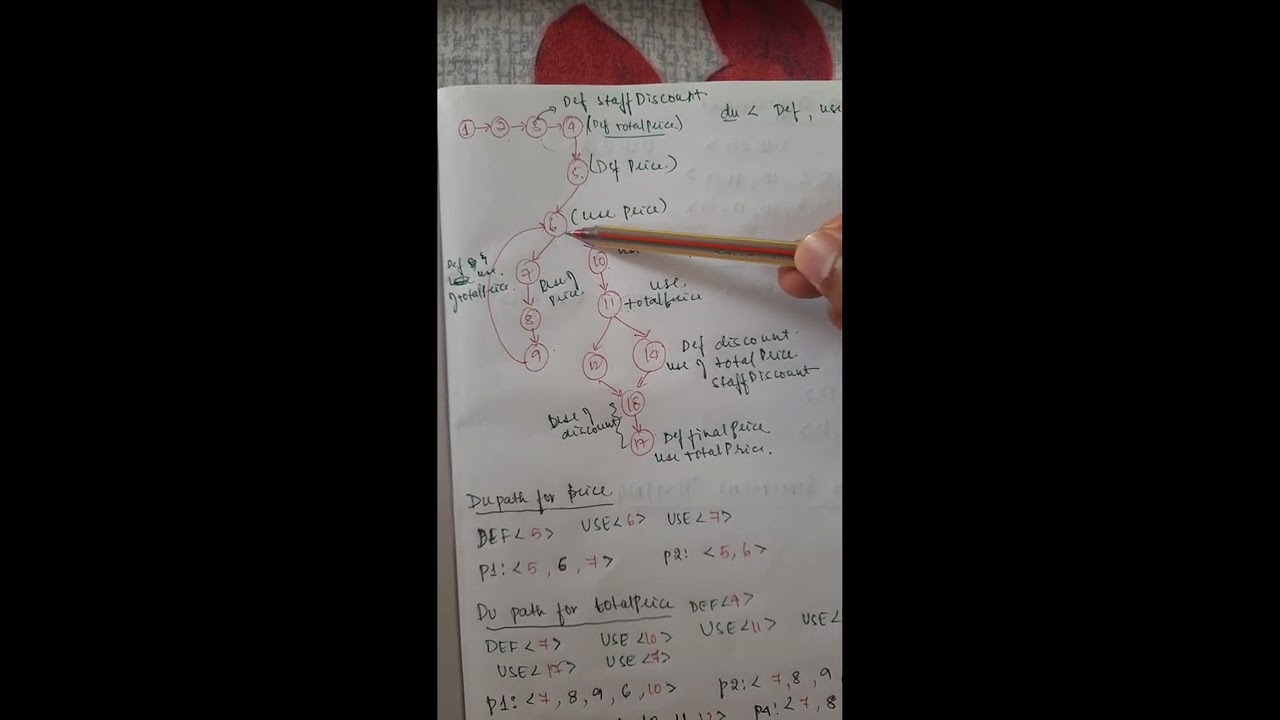 Def staffDiscount.
du < Def, use
1 2 3 4 (Def totalPrice)
5. (Def Price.)
6 (use price)
10
Def & use.
7
of totalprice.
Duse of
price.
use.
11 totalprice
8
9
12 14
Def discount.
use of totalPrice.
staffDiscount
18
Duse of
discount
17
Def finalprice.
use totalPrice.
Du path for price.
DEF<5> USE<6> USE<7>
p1:<5, 6, 7> p2: <5, 6>
Du path for totalprice DEF<4>
DEF<7> USE<10> USE<11> USE<
USE<17> USE<7>
p1:<7, 8, 9, 6, 10> p2:<7, 8, 9
10, 11, 12> p4:<7, 8